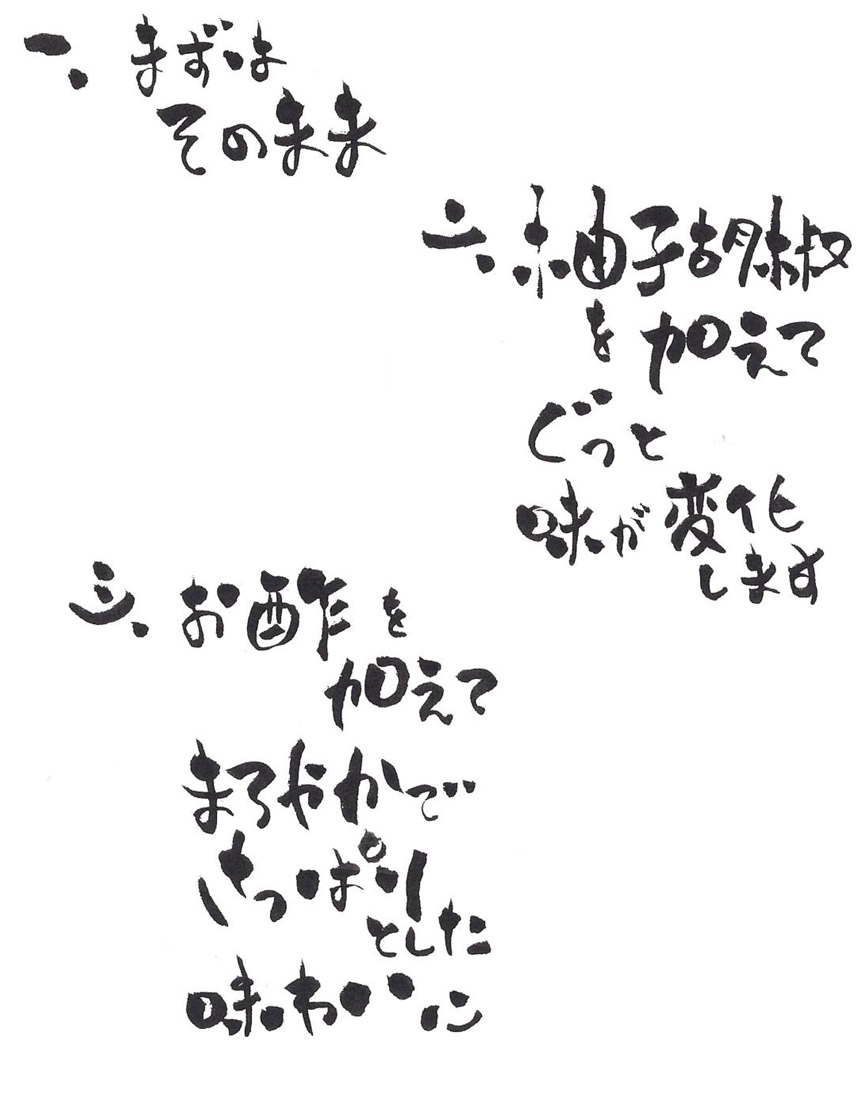 一、まずは
そのまま
二、柚子胡椒
を加えて
ぐっと
味が変化
します
三、お酢を
加えて
まろやかで
さっぱり
とした
味わいに